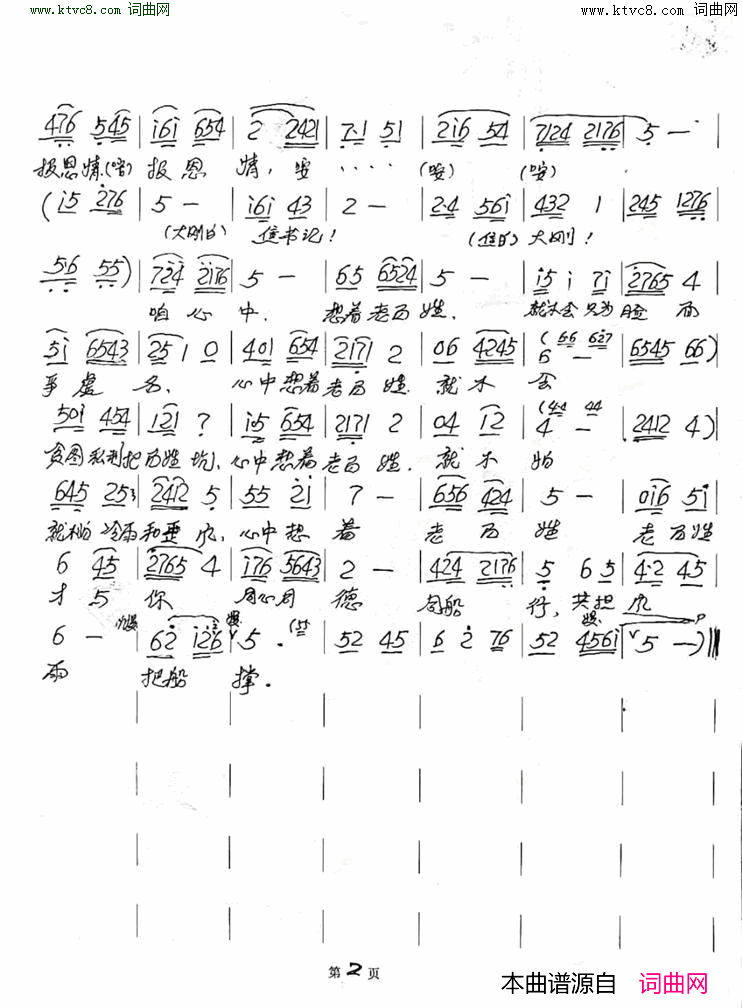 www.ktvc8.com 词曲网 www.ktvc8.com 词曲网
476 545 | i6i 654 | 2 2421 | 7·1 51 | 2i6 54 | 7124 2176 | 5 — |
报恩情(唵) 报恩 情,
(i5 276 | 5 — | i6i 43 | 2 — | 2·4 56i | 432 1 | 245 1276 |
(大刚的) 任书记! (任的) 大刚!
5·6 55) | 724 2176 | 5 — | 65 6524 | 5 — | i5 i 7i | 2765 4
咱心中. 想着老百姓. 就不会只为脸面
5i 6543 | 25 1 0 | 401 654 | 2171 2 | 06 4245 | 6 — | 6545 66)
(66 627
争虚名. 心中想着老百姓. 就不会
50i 454 | 121 ? | i5 654 | 2171 2 | 04 i2 | 4 — | 2412 4)
(44 44
贪图私利把百姓坑. 心中想着老百姓. 就不怕
645 253 | 2412 5 | 55 2i | 7 — | 656 424 | 5 — | 0i6 5i
就不怕冷雨和 风. 心中想着 老百姓 老百姓
6 45 | 2765 4 | i76 5643 | 2 — | 424 2176 | 5 6 5 | 4·2 45
才与你 同心同德 同船行, 共担风
6 — | 62 i2i6 | 5 · | 52 45 | 6 2 76 | 52 456i | 5 —) ‖
雨 把船 撑.
第 2 页
本曲谱源自 词曲网